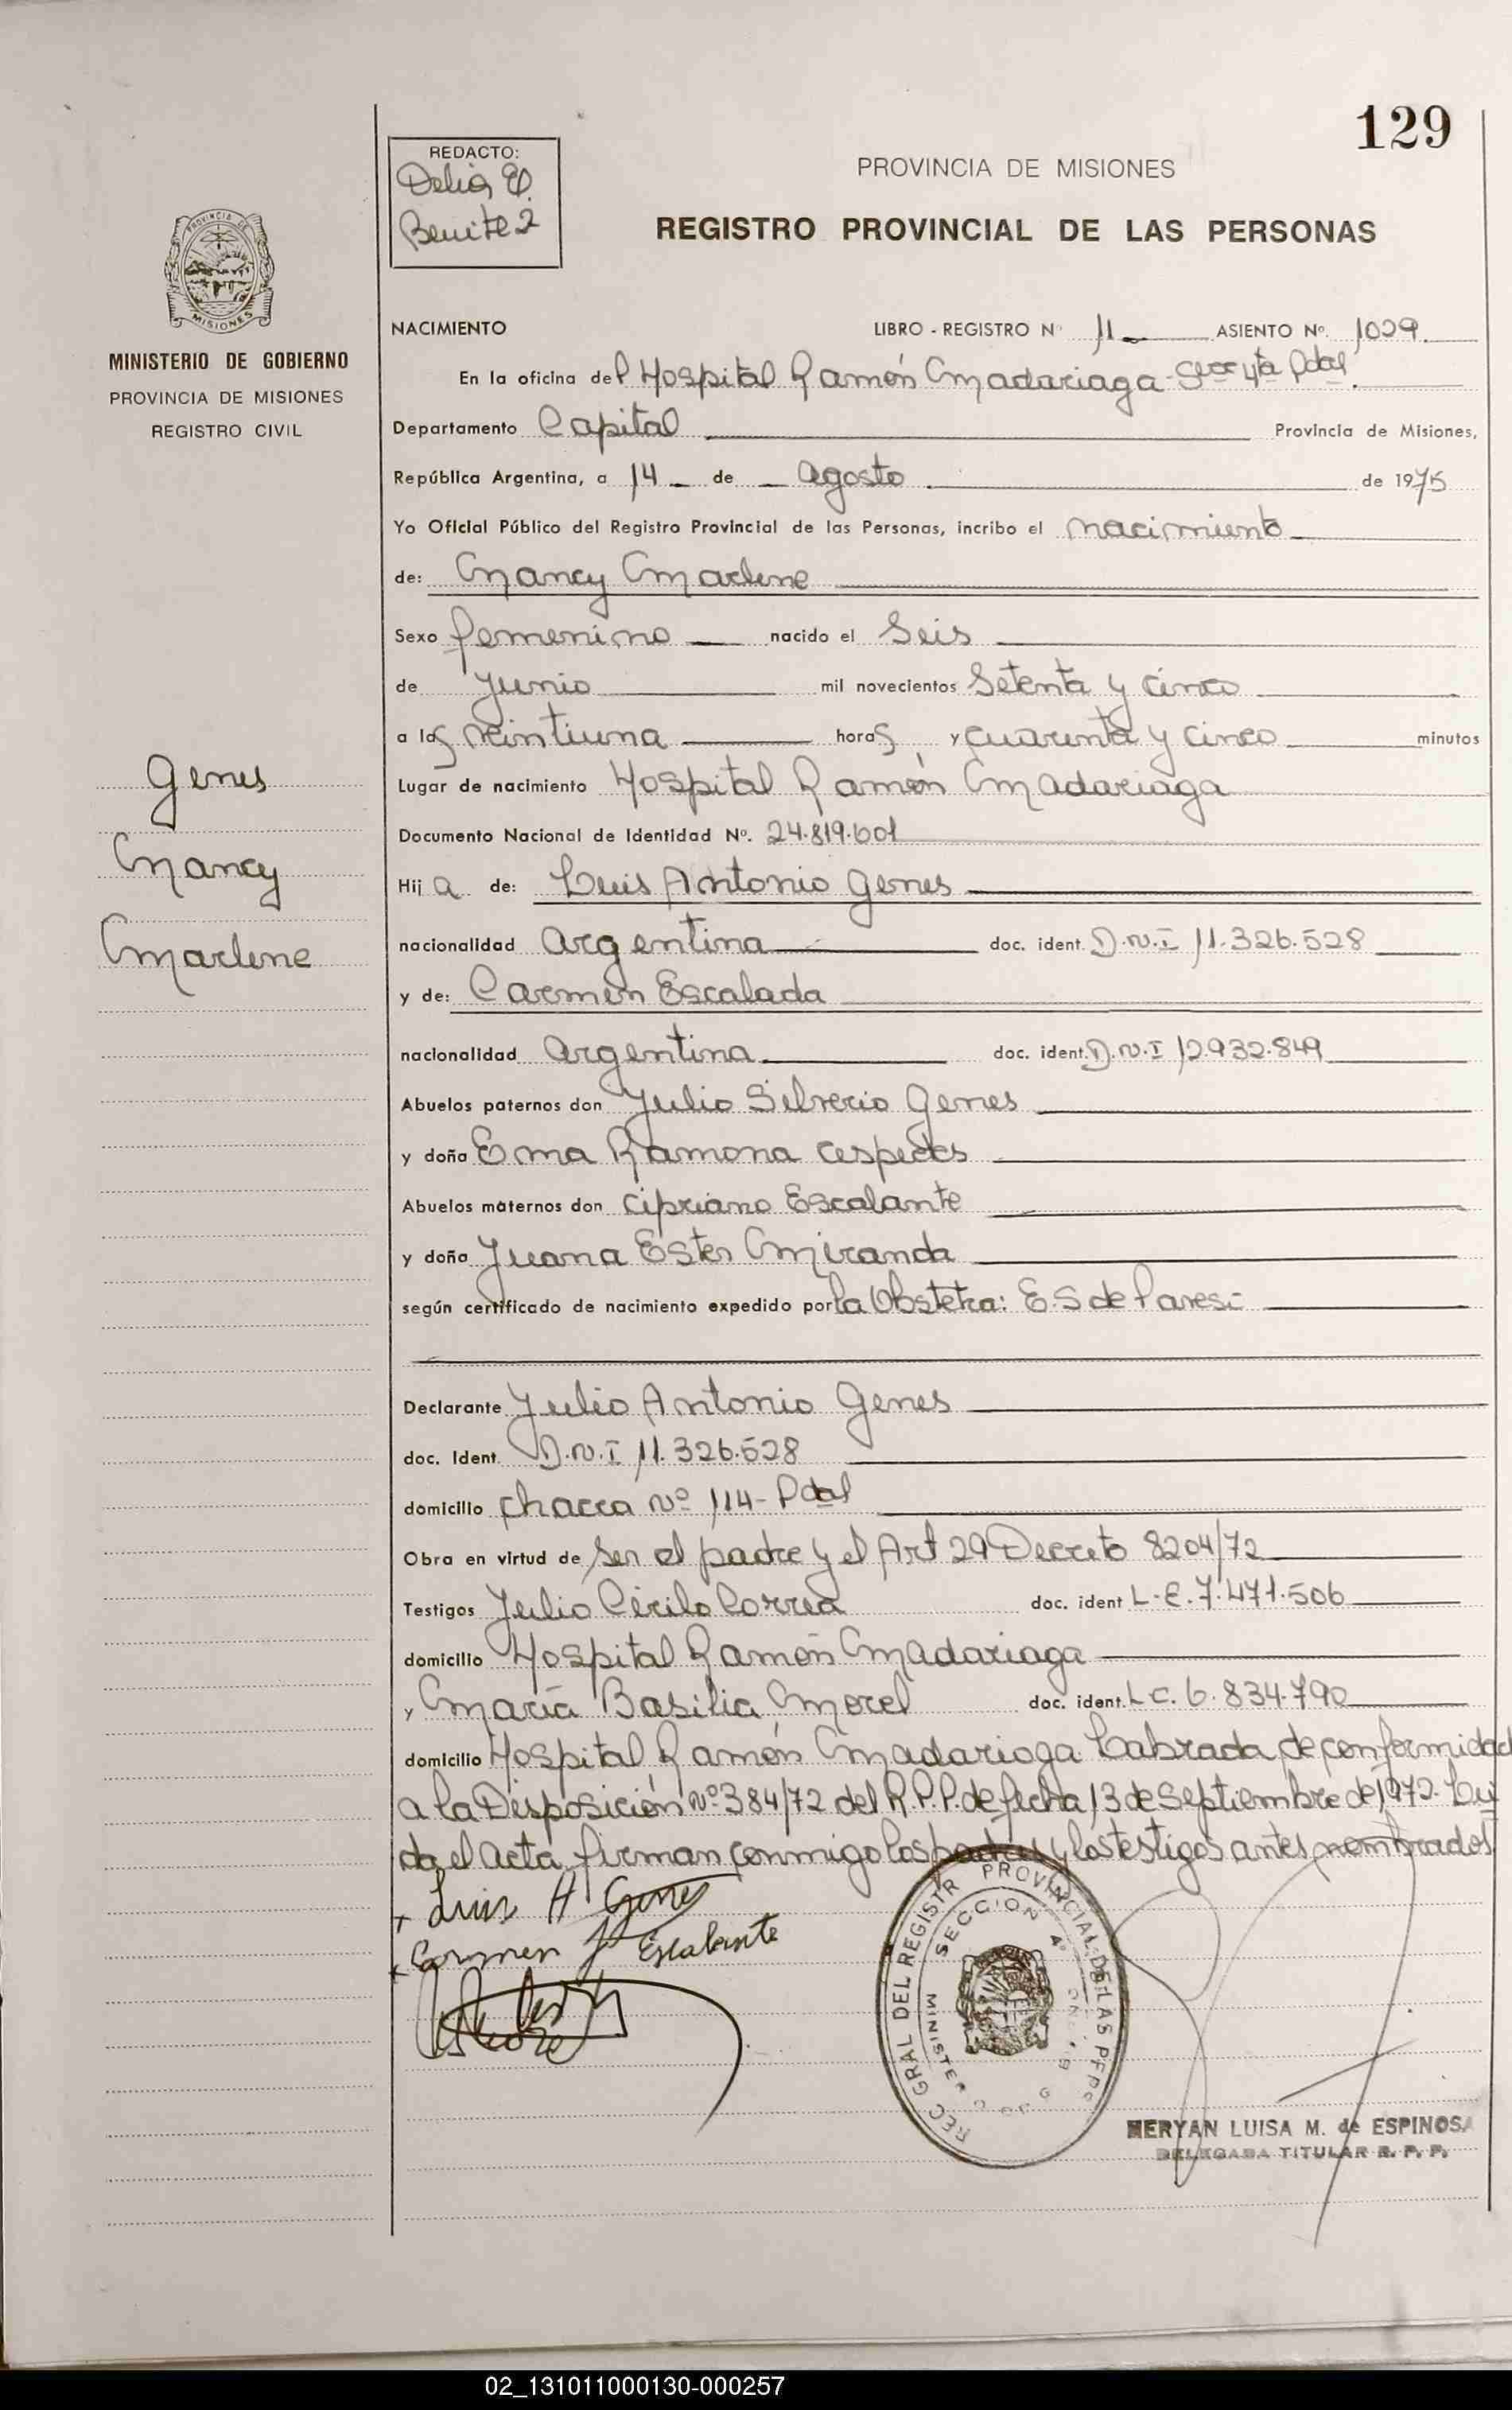 129
REDACTO:
Delia E.
Benitez
PROVINCIA DE MISIONES
REGISTRO PROVINCIAL DE LAS PERSONAS
PROVINCIA DE
MISIONES
MINISTERIO DE GOBIERNO
PROVINCIA DE MISIONES
REGISTRO CIVIL
NACIMIENTO LIBRO - REGISTRO Nº 11 ASIENTO Nº. 1029
En la oficina del Hospital Ramón Madariaga Secc 4ta Pdas.
Departamento Capital Provincia de Misiones,
República Argentina, a 14 de Agosto de 1975
Yo Oficial Público del Registro Provincial de las Personas, incribo el nacimiento
de: Nancy Marlene
Sexo femenino nacido el Seis
de Junio mil novecientos Setenta y cinco
a las veintiuna horas y cuarenta y cinco minutos
Lugar de nacimiento Hospital Ramón Madariaga
Documento Nacional de Identidad Nº. 24.819.601
Hija de: Luis Antonio Genes
nacionalidad Argentina doc. ident. D.N.I 11.326.528
y de: Carmen Escalada
nacionalidad Argentina doc. ident. D.N.I 12.932.849
Abuelos paternos don Julio Silverio Genes
y doña Ema Ramona Cespedes
Abuelos maternos don Cipriano Escalante
y doña Juana Ester Miranda
según certificado de nacimiento expedido por la Obstetra: E.S de Paresi
Declarante Julio Antonio Genes
doc. Ident. D.N.I 11.326.528
domicilio chacra Nº 114- Pdas
Obra en virtud de ser el padre y el Art 29 Decreto 8204/72
Testigos Julio Cirilo Correa doc. ident L.E. 7.471.506
domicilio Hospital Ramón Madariaga
y María Basilia Morel doc. ident. L.C. 6.834.790
domicilio Hospital Ramón Madariaga Labrada de conformidad
a la Disposición Nº 384/72 del R.P.P. de fecha 13 de Septiembre de 1972. Leí
da el acta firman conmigo los padres y los testigos antes nombrados
Genes
Nancy
Marlene
x Luis A Genes
x Carmen J Escalante
REC GRAL DEL REGISTR PROVINCIAL DE LAS PERS
SECCION 4º
MINISTE
MERYAN LUISA M. de ESPINOSA
DELEGADA TITULAR R. P. P.
02_131011000130-000257